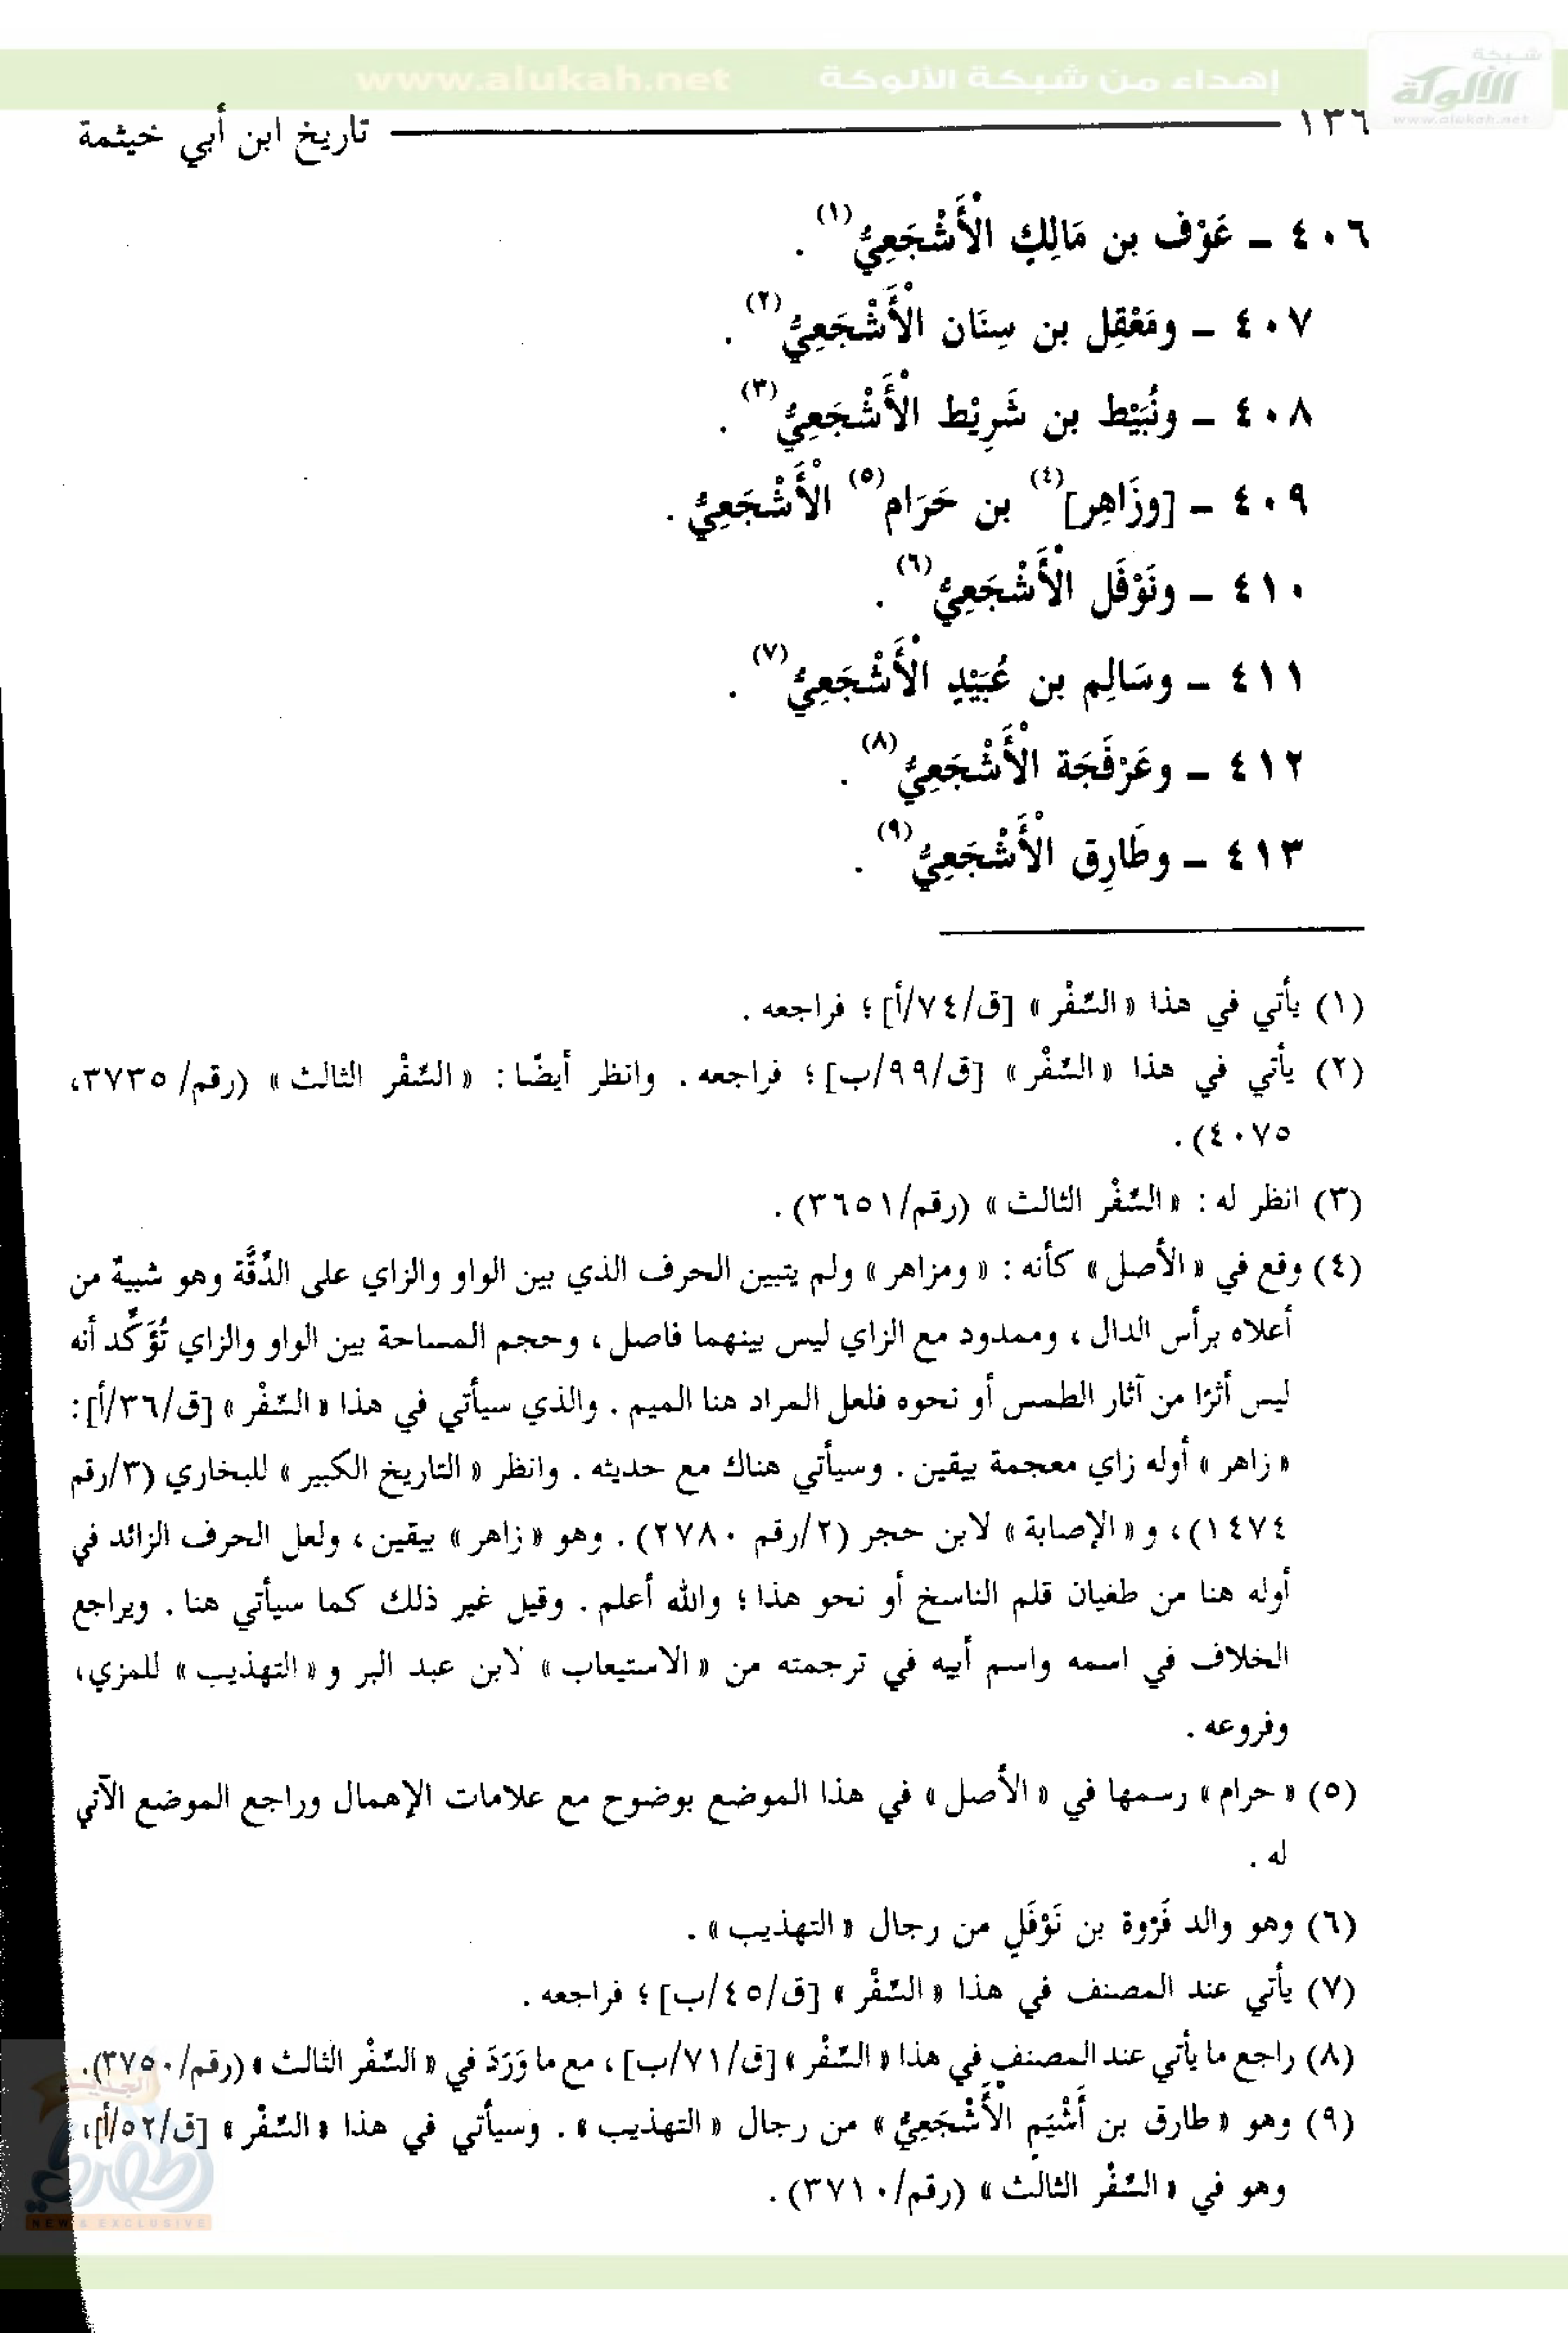 www.alukah.net إهداء من شبكة الألوكة
شبكة
الألوكة
www.alukah.net
١٣٦ تاريخ ابن أبي خيثمة
٤٠٦ - عَوْف بن مَالِكٍ الْأَشْجَعِيُّ(١) .
٤٠٧ - ومَعْقِل بن سِنَان الْأَشْجَعِيُّ(٢) .
٤٠٨ - ونُبَيْط بن شَرِيْط الْأَشْجَعِيُّ(٣) .
٤٠٩ - [وزَاهِر](٤) بن حَرَام(٥) الْأَشْجَعِيُّ .
٤١٠ - ونَوْفَل الْأَشْجَعِيُّ(٦) .
٤١١ - وسَالِم بن عُبَيْدٍ الْأَشْجَعِيُّ(٧) .
٤١٢ - وعَرْفَجَة الْأَشْجَعِيُّ(٨) .
٤١٣ - وطَارِق الْأَشْجَعِيُّ(٩) .
(١) يأتي في هذا « السِّفْر » [ق/٧٤/أ] ؛ فراجعه .
(٢) يأتي في هذا « السِّفْر » [ق/٩٩/ب] ؛ فراجعه . وانظر أيضًا : « السِّفْر الثالث » (رقم/ ٣٧٣٥،
٤٠٧٥) .
(٣) انظر له : « السِّفْر الثالث » (رقم/٣٦٥١) .
(٤) وقع في « الأصل » كأنه : « ومزاهر » ولم يتبين الحرف الذي بين الواو والزاي على الدِّقَّة وهو شبيهٌ من
أعلاه برأس الدال ، وممدود مع الزاي ليس بينهما فاصل ، وحجم المساحة بين الواو والزاي تُؤَكِّد أنه
ليس أثرًا من آثار الطمس أو نحوه فلعل المراد هنا الميم . والذي سيأتي في هذا « السِّفْر » [ق/٣٦/أ] :
« زاهر » أوله زاي معجمة بيقين . وسيأتي هناك مع حديثه . وانظر « التاريخ الكبير » للبخاري (٣/رقم
١٤٧٤) ، و « الإصابة » لابن حجر (٢/رقم ٢٧٨٠) . وهو « زاهر » بيقين ، ولعل الحرف الزائد في
أوله هنا من طغيان قلم الناسخ أو نحو هذا ؛ والله أعلم . وقيل غير ذلك كما سيأتي هنا . ويراجع
الخلاف في اسمه واسم أبيه في ترجمته من « الاستيعاب » لابن عبد البر و « التهذيب » للمزي ،
وفروعه .
(٥) « حرام » رسمها في « الأصل » في هذا الموضع بوضوح مع علامات الإهمال وراجع الموضع الآتي
له .
(٦) وهو والد فَرْوة بن نَوْفَلٍ من رجال « التهذيب » .
(٧) يأتي عند المصنف في هذا « السِّفْر » [ق/٤٥/ب] ؛ فراجعه .
(٨) راجع ما يأتي عند المصنف في هذا « السِّفْر » [ق/٧١/ب] ، مع ما وَرَدَ في « السِّفْر الثالث » (رقم/٣٧٥٠).
(٩) وهو « طارق بن أَشْيَمٍ الْأَشْجَعِيُّ » من رجال « التهذيب » . وسيأتي في هذا « السِّفْر » [ق/٥٢/أ] ،
وهو في « السِّفْر الثالث » (رقم/٣٧١٠) .
NEW & EXCLUSIVE